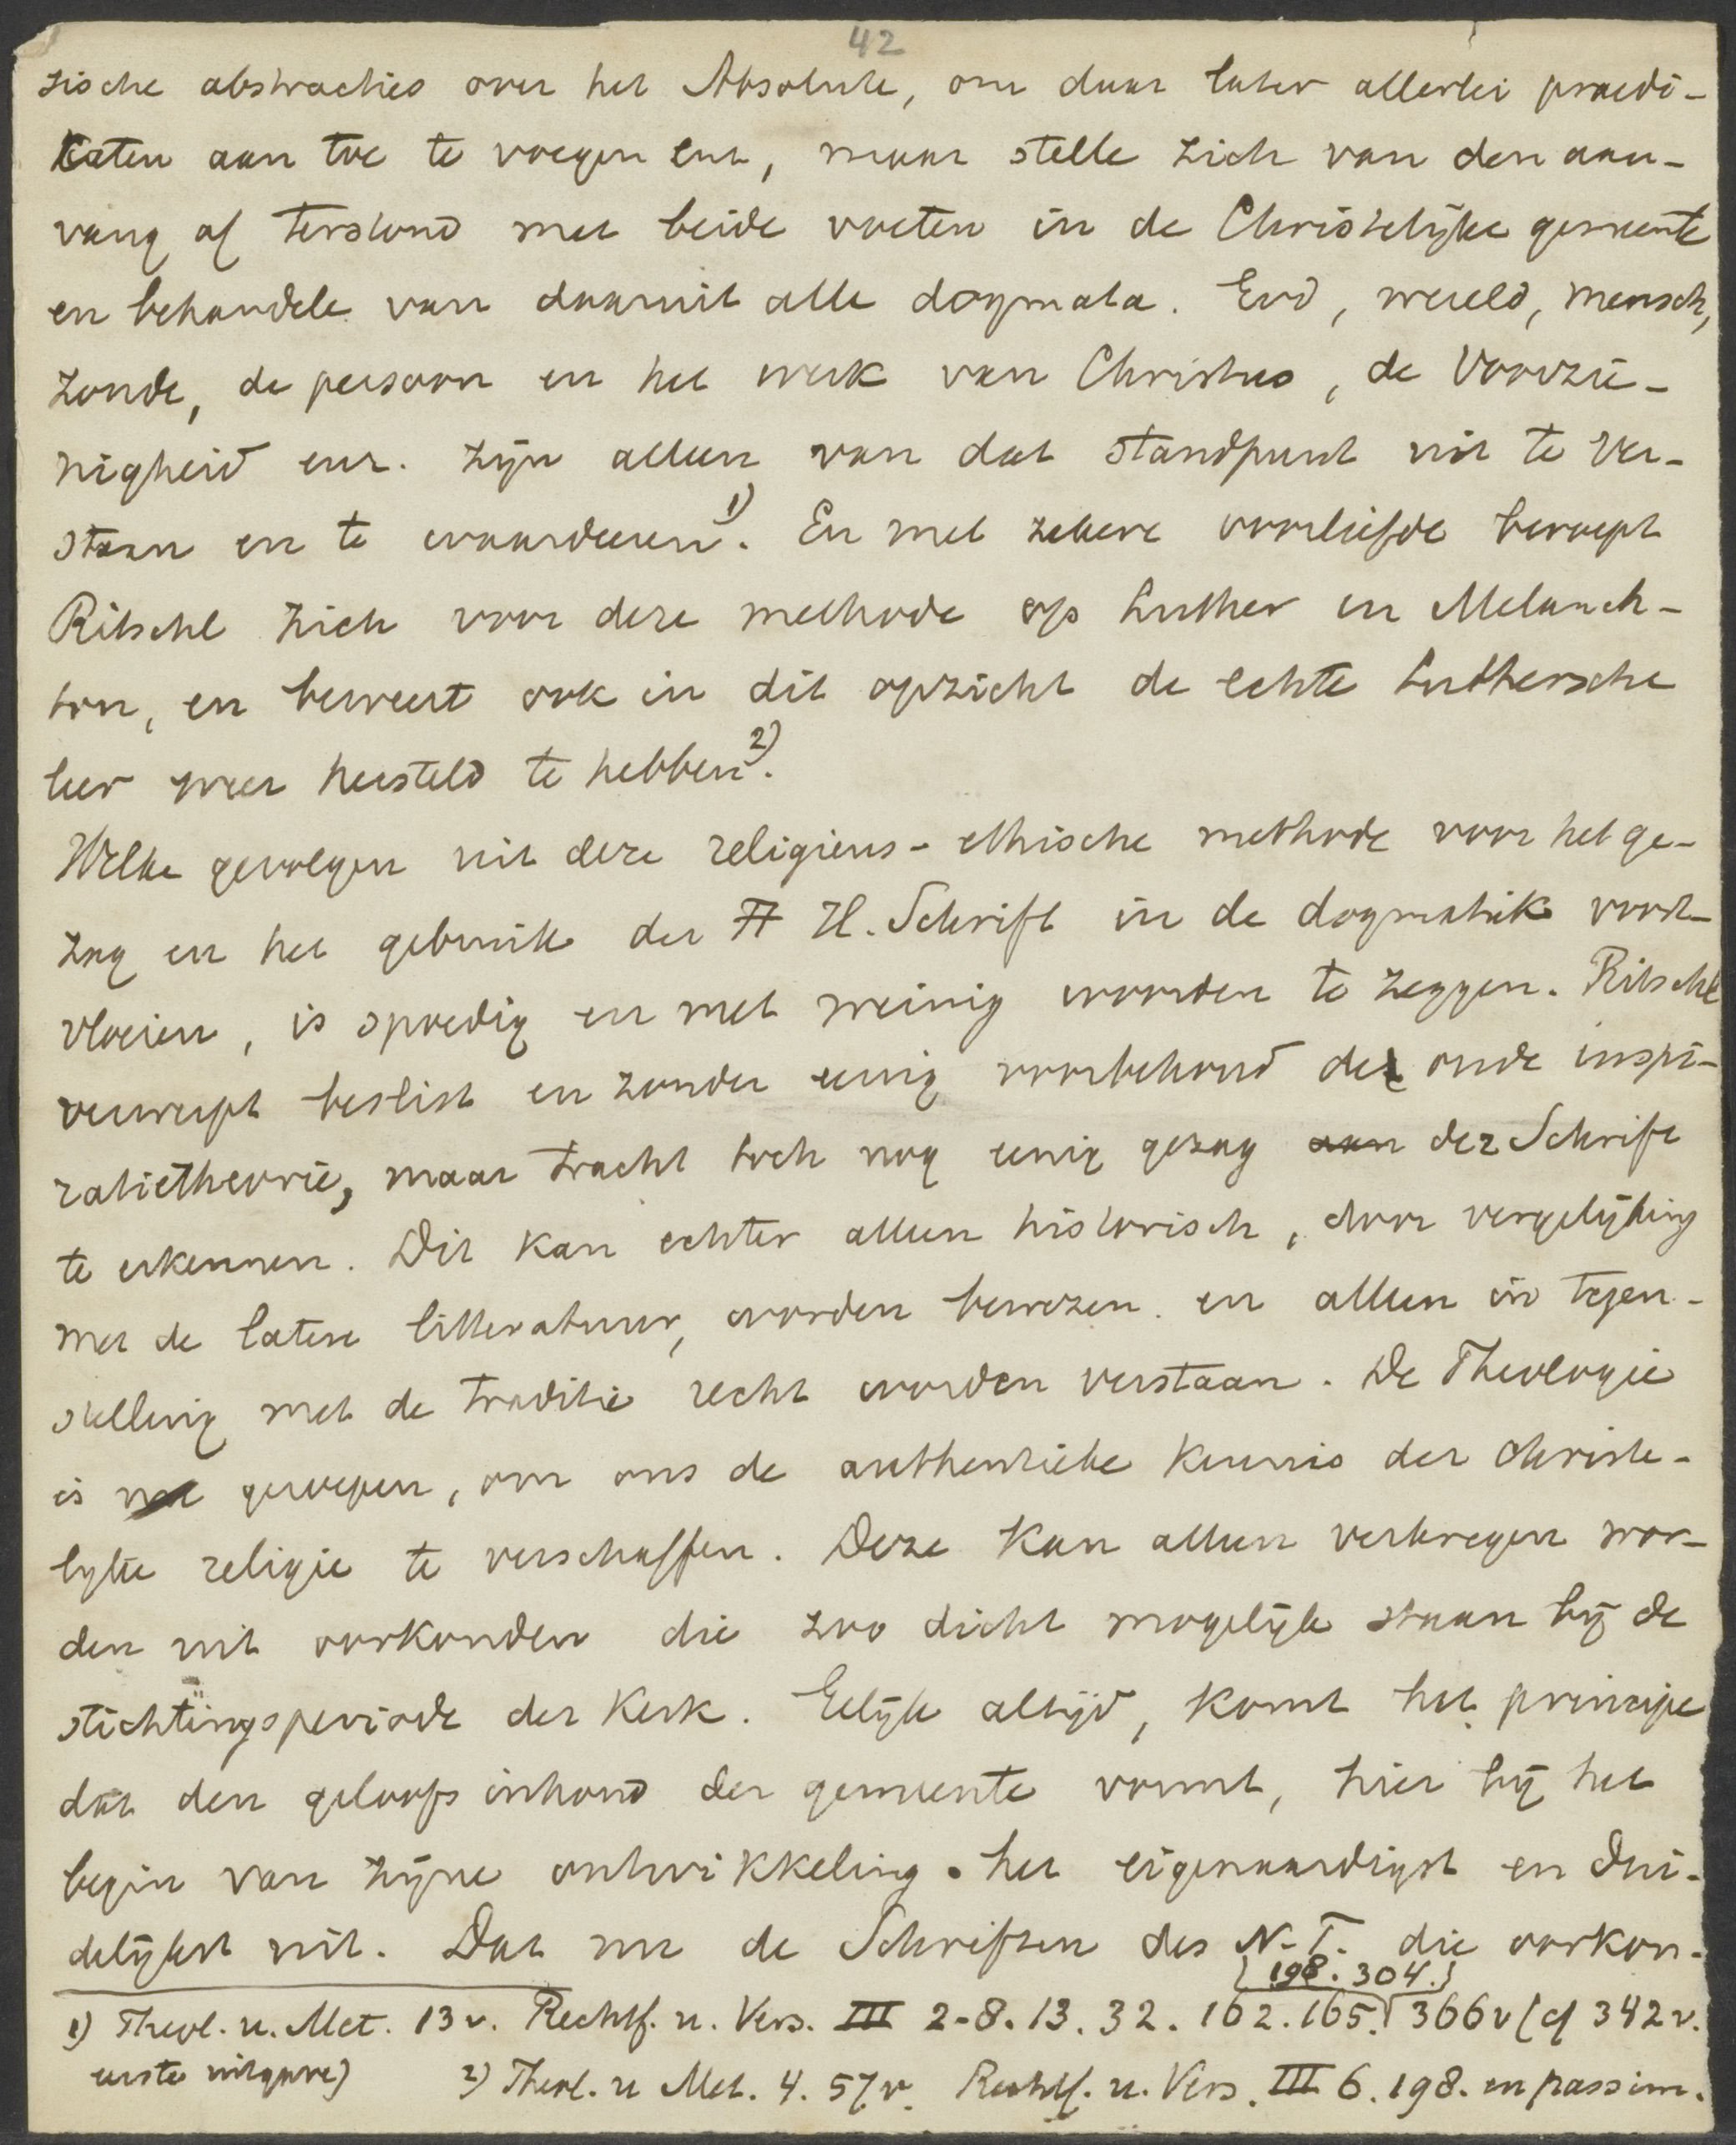 42
zische abstracties over het Absolute, om daar later allerlei praedi-
caten aan toe te voegen enz, maar stelle zich van den aan-
vang af terstond met beide voeten in de Christelijke gemeente
en behandele van daaruit alle dogmata. God, wereld, mensch,
zonde, de persoon en het werk van Christus, de Voorzie-
nigheid enz. zijn alleen van dat standpunt uit te ver-
staan en te waardeeren 1). En met zekere voorliefde beroept
Ritschl zich voor deze methode op Luther en Melanch-
ton, en beweert ook in dit opzicht de echte Luthersche
leer weer hersteld te hebben 2).
Welke gevolgen uit deze religieus-ethische methode voor het ge-
zag en het gebruik der H. Schrift in de dogmatik voort-
vloeien, is spoedig en met weinig woorden te zeggen. Ritschl
verwerpt beslist en zonder eenig voorbehoud de oude inspi-
ratietheorie, maar tracht toch nog eenig gezag aan der Schrift
te erkennen. Dit kan echter alleen historisch, door vergelijking
met de latere litteratuur, worden bewezen en alleen in tegen-
stelling met de traditie recht worden verstaan. De Theologie
is geroepen, om ons de authentieke kennis der christe-
lijke religie te verschaffen. Deze kan alleen verkregen wor-
den uit oorkonden die zoo dicht mogelijk staan bij de
stichtingsperiode der Kerk. Gelijk altijd, komt het principe
dat den geloofsinhoud der gemeente vormt, hier bij het
begin van zijne ontwikkeling het eigenaardigst en dui-
delijkst uit. Dat nu de Schriften des N.T. die oorkon-
{198. 304.}
1) Theol. u. Met. 13v. Rechtf. u. Vers. III 2-8. 13. 32. 162. 165. 366v (cf 342v.
eerste uitgave) 2) Theol. u Met. 4. 57v. Rechtf. u. Vers. III 6. 198. en passim.